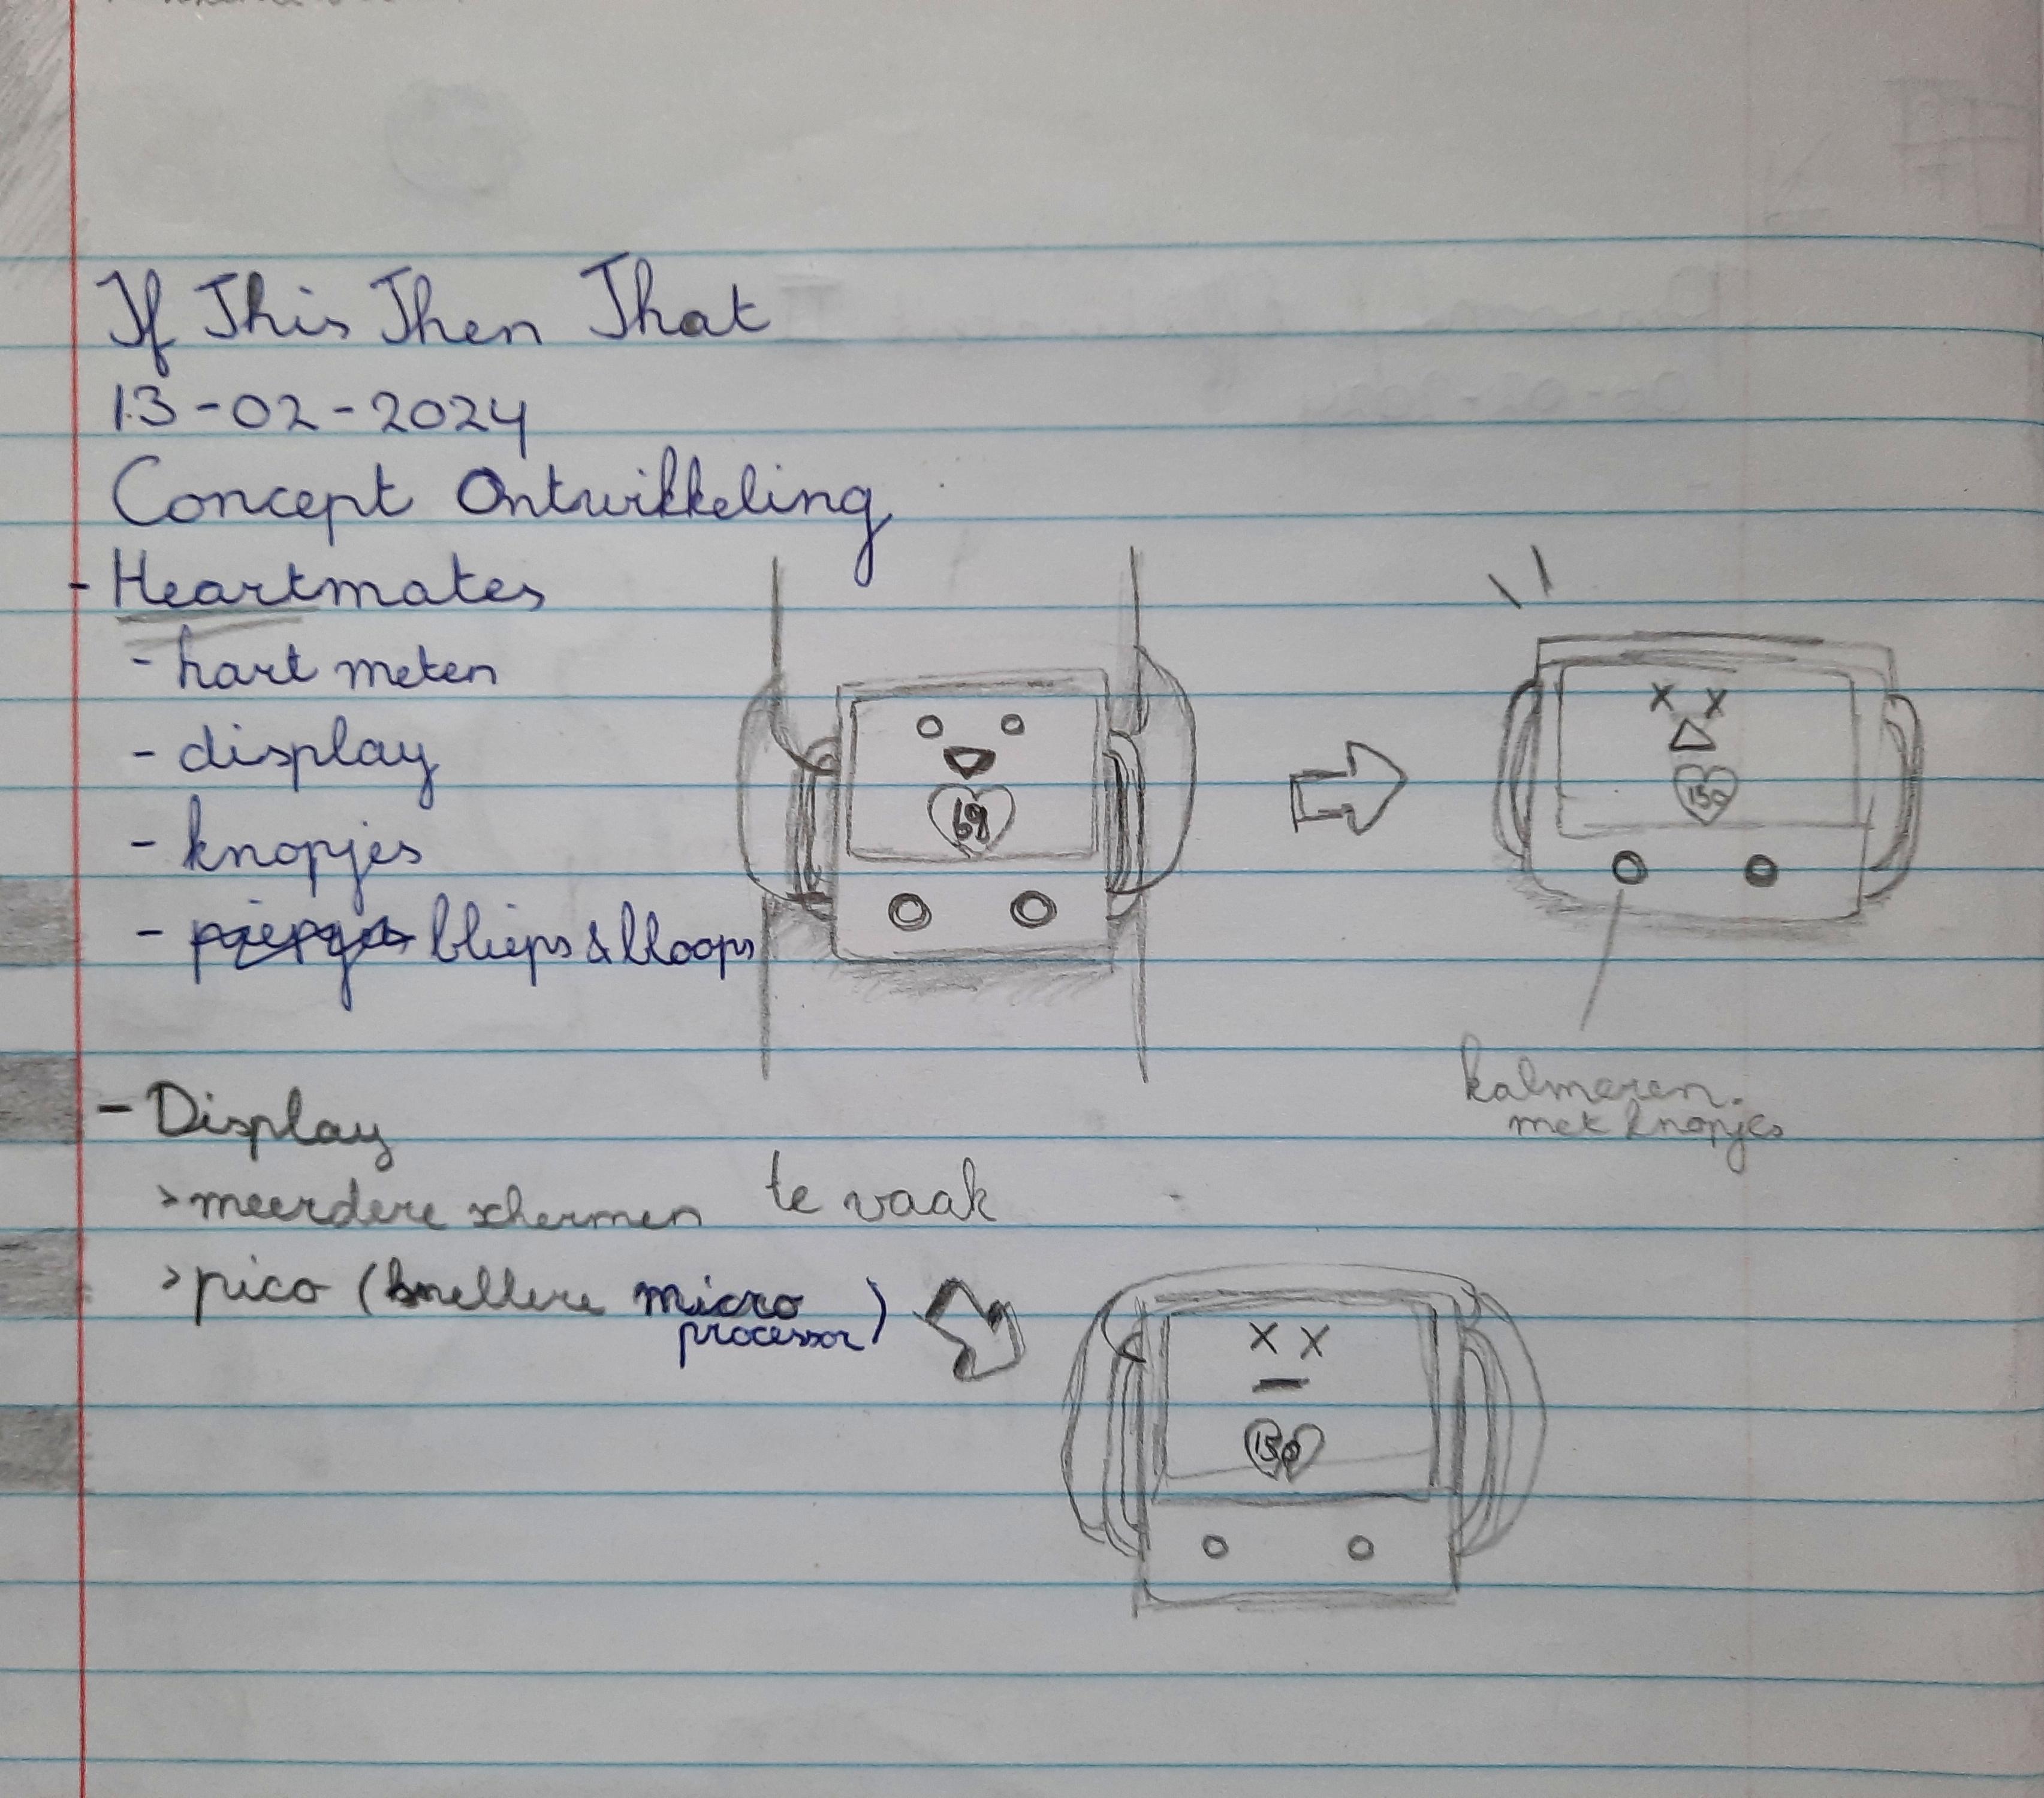 If This Then That
13-02-2024
Concept Ontwikkeling
- Heartmates
- hart meten
- display
- knopjes
- blieps & bloops
69
150
kalmeren
met knopjes
- Display
> meerdere schermen
te vaak
> pico (snellere micro
processor)
150